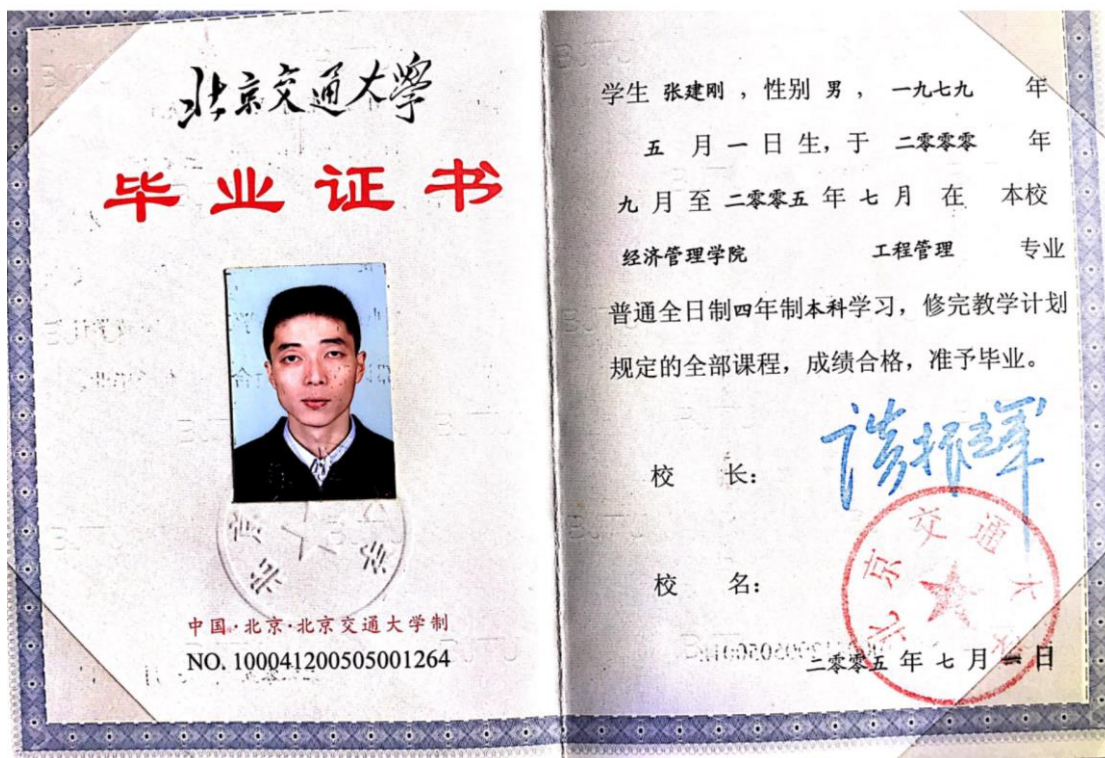 北京交通大學
毕业证书
中国·北京·北京交通大学制
NO. 100041200505001264
学生 张建刚 ，性别 男 ， 一九七九 年
五 月 一 日 生，于 二零零零 年
九 月 至 二零零五 年 七 月 在 本校
经济管理学院 工程管理 专业
普通全日制四年制本科学习，修完教学计划
规定的全部课程，成绩合格，准予毕业。
校 长：
谈振辉
校 名：
北京交通大学
二零零五 年 七 月 一 日